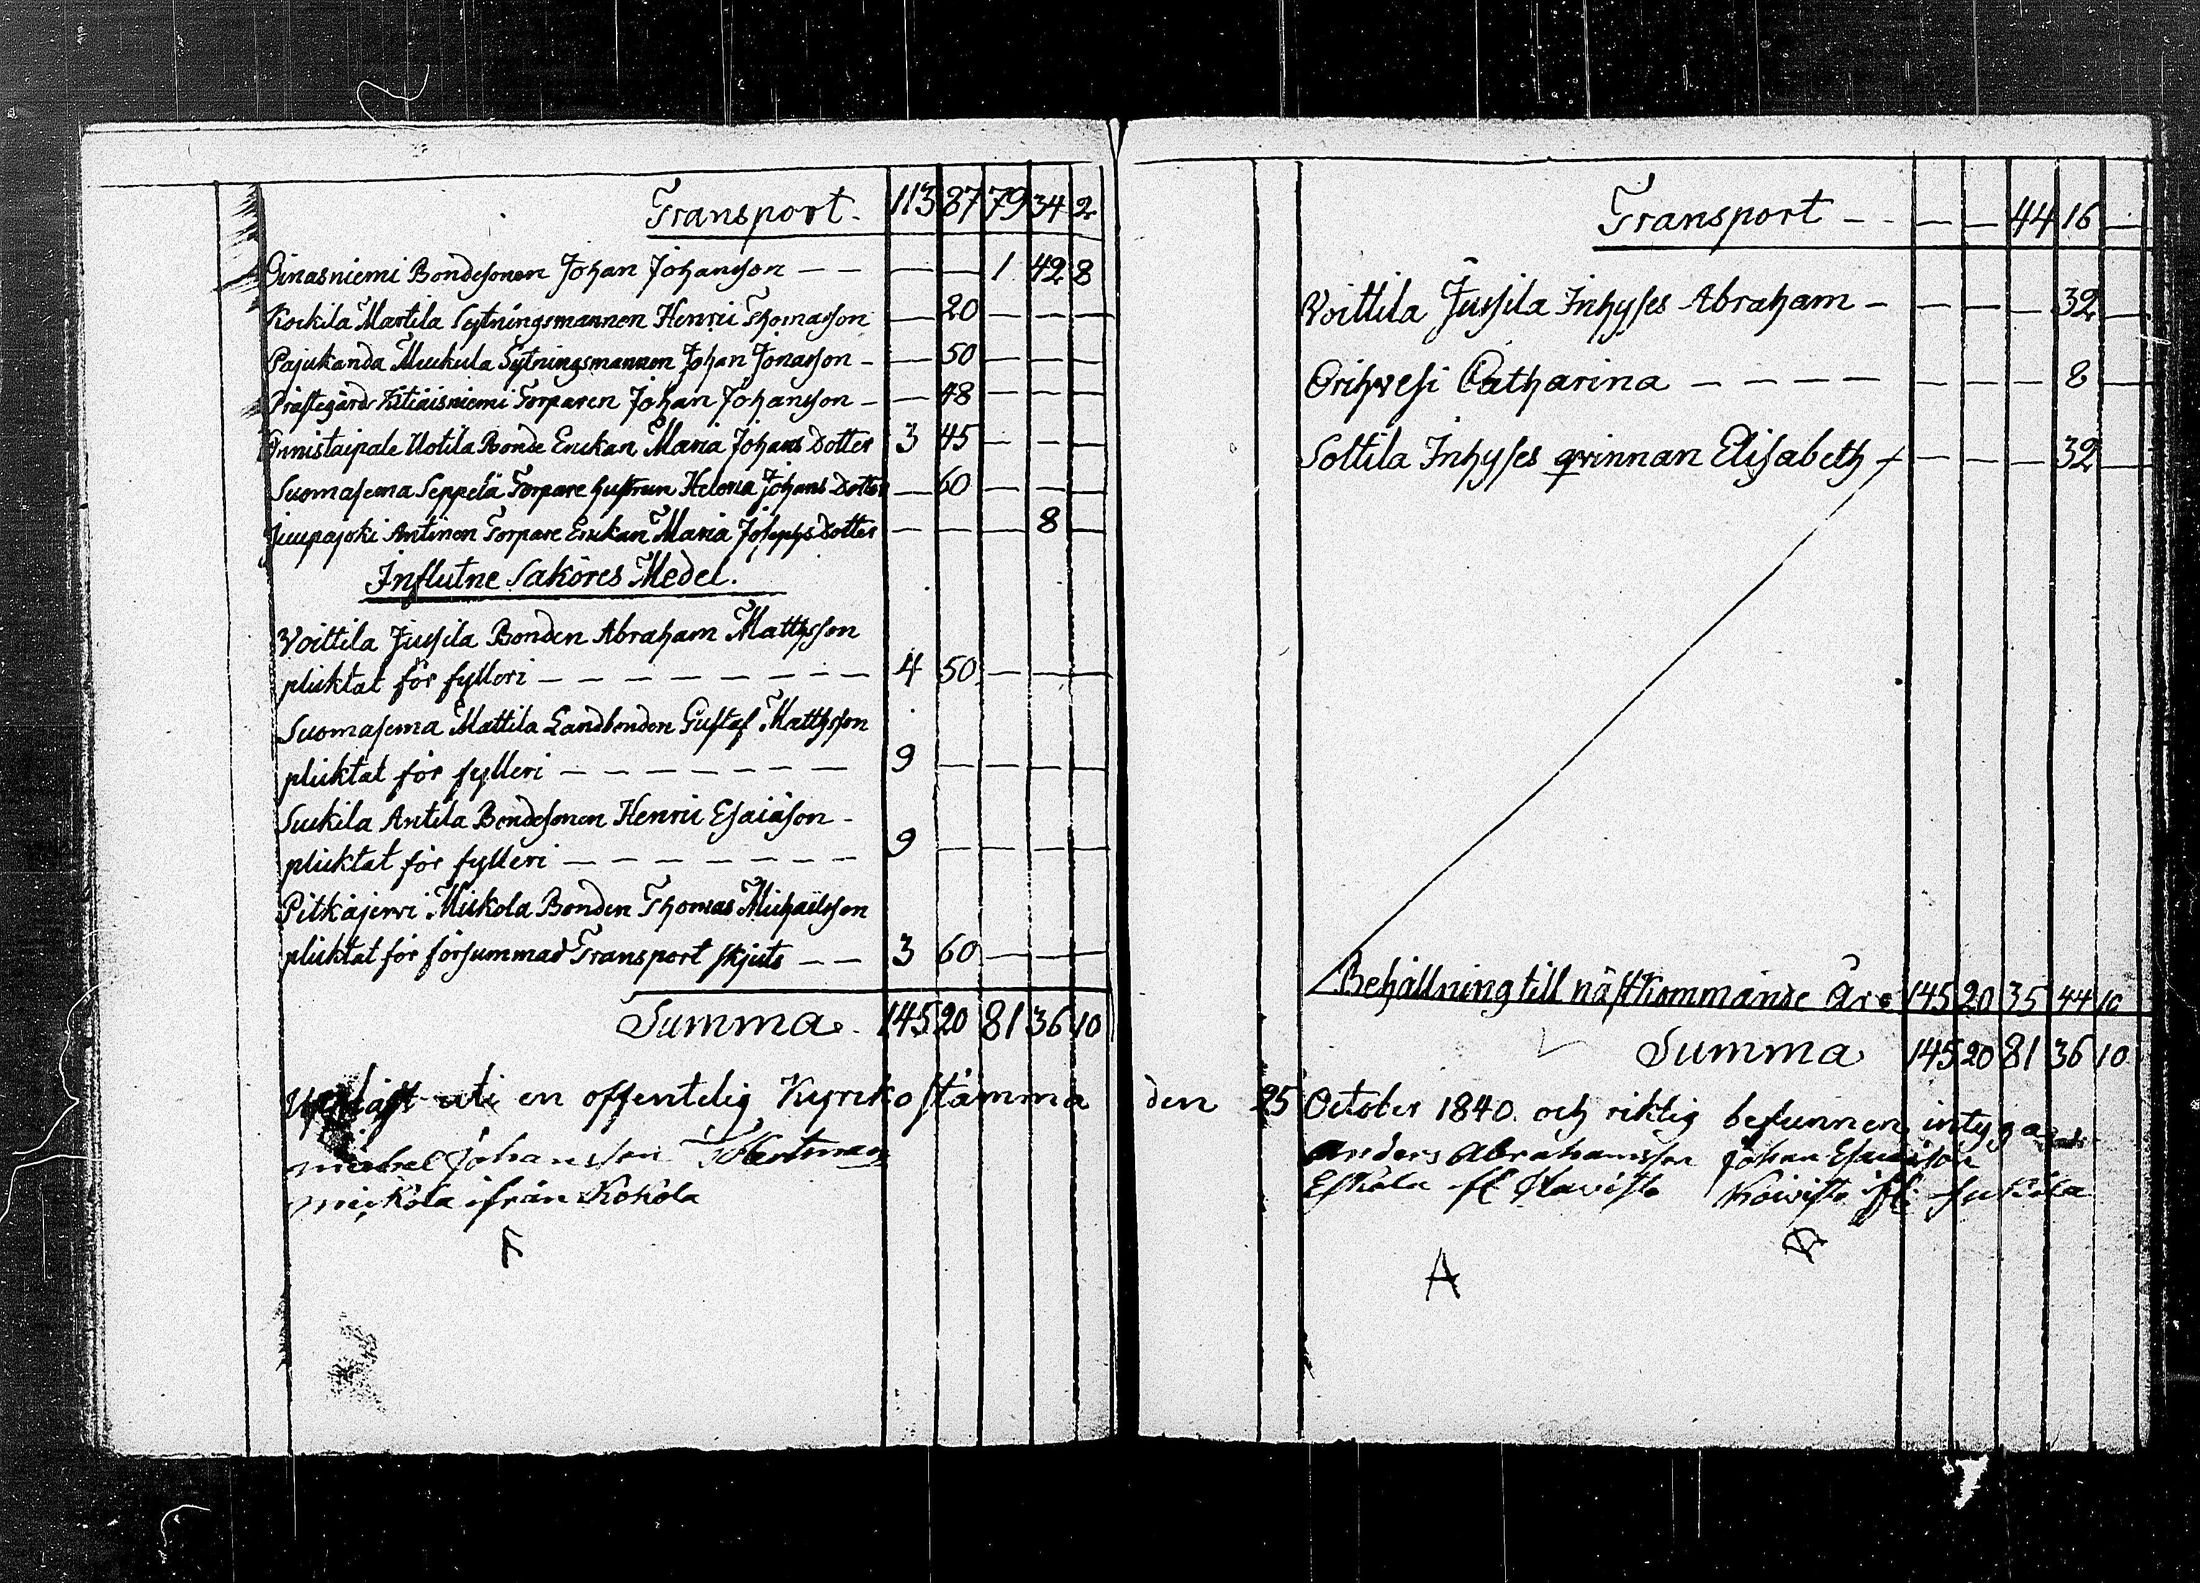 Transport. 113 87 79 34 2
Oinasniemi Bondesonen Johan Johansson — — — — 1 42 8
Kockila Martila Sytningsmannen Henric Thomasson — 20 — — —
Pajukanda Muckula Sytningsmannen Johan Jonasson — — 50 — — —
Prästegårds Kitiäisniemi Torparen Johan Johansson — — 48 — — —
Onnistaipale Uotila Bonde Enckan Maria Johans Dotter 3 45 — — —
Suomasema Seppelä Torpare hustrun Helena Johans Dotter — 60 — — —
Juupajoki Antinen Torpare Enckan Maria Josephs Dotter — — — 8 —
Influtne Saköres Medel.
Voittila Jussila Bonden Abraham Mattsson
pliktat för fylleri — — — — — — — — 4 50 — — —
Suomasema Mattila Landbonden Gustaf Mattsson
pliktat för fylleri — — — — — — — 9 — — — —
Suckila Antila Bondesonen Henric Esaiäson —
pliktat för fylleri — — — — — — — 9 — — — —
Pitkäjerwi Mickola Bonden Thomas Michaelsson
pliktat för försummad Transport skjuts — — 3 60 — — —
Summa. 145 20 81 36 10
uti en offentelig Kyrko stämma den 25 October 1840. och riktig befunnen, intyga
Michel Johansson
mickola ifrån Kokola
F
Transport — — — — 44 16 —
Voittila Jussila Inhyses Abraham — — — — 32 —
Orihvesi Catharina — — — — — — — 8 —
Sottila Inhyses qvinnan Elisabeth — — — — 32 —
Behållning till nästkommande Åre 145 20 35 44 10
Summa 145 20 81 36 10
Anders Abrahamsson Johan Esaiäson
Eskola fr Koivisto fr
A